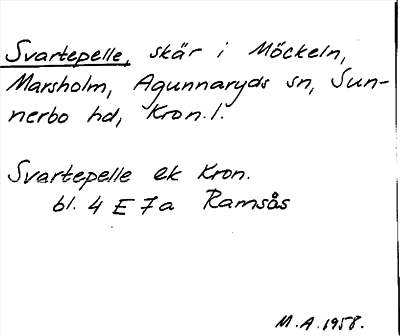 Svartepelle, skär i Möckeln,
Marsholm, Agunnaryds sn, Sun-
nerbo hd, Kron.l.
Svartepelle ek Kron.
bl. 4 E 7a Ramsås
M.A.1958.